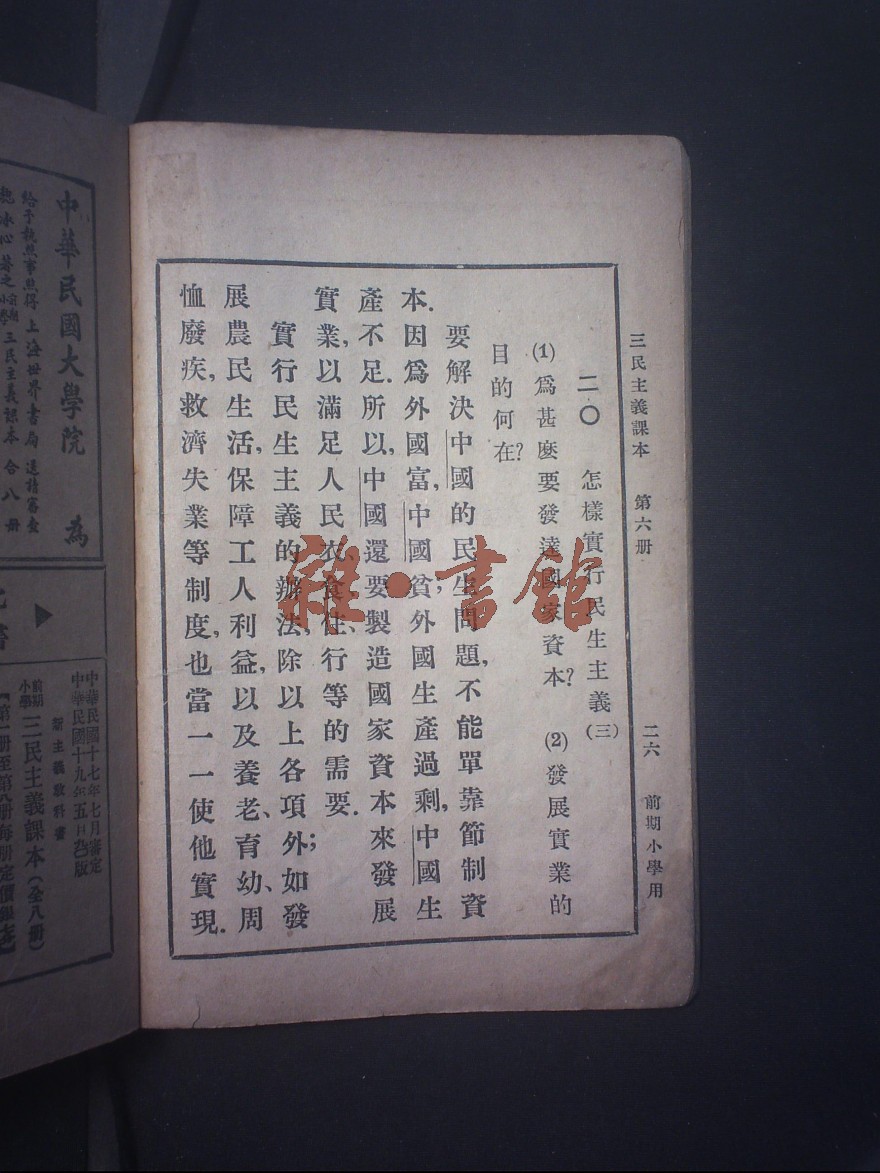 三民主義課本　第六册　二六　前期小學用
二〇　怎樣實行民生主義(三)
(1)爲甚麼要發達國家資本？(2)發展實業的
目的何在？
要解決中國的民生問題,不能單靠節制資
本.因爲外國富,中國貧;外國生產過剩,中國生
產不足.所以,中國還要製造國家資本來發展
實業,以滿足人民衣、食、住、行等的需要.
實行民生主義的辦法,除以上各項外;如發
展農民生活,保障工人利益,以及養老、育幼、周
恤廢疾,救濟失業等制度,也當一一使他實現.
雜·書館
中華民國大學院　爲
上海世界書局
三民主義課本　合八册
中華民國十七年七月審定
中華民國十九年五月
新主義教科書
前期
小學
三民主義課本(全八册)